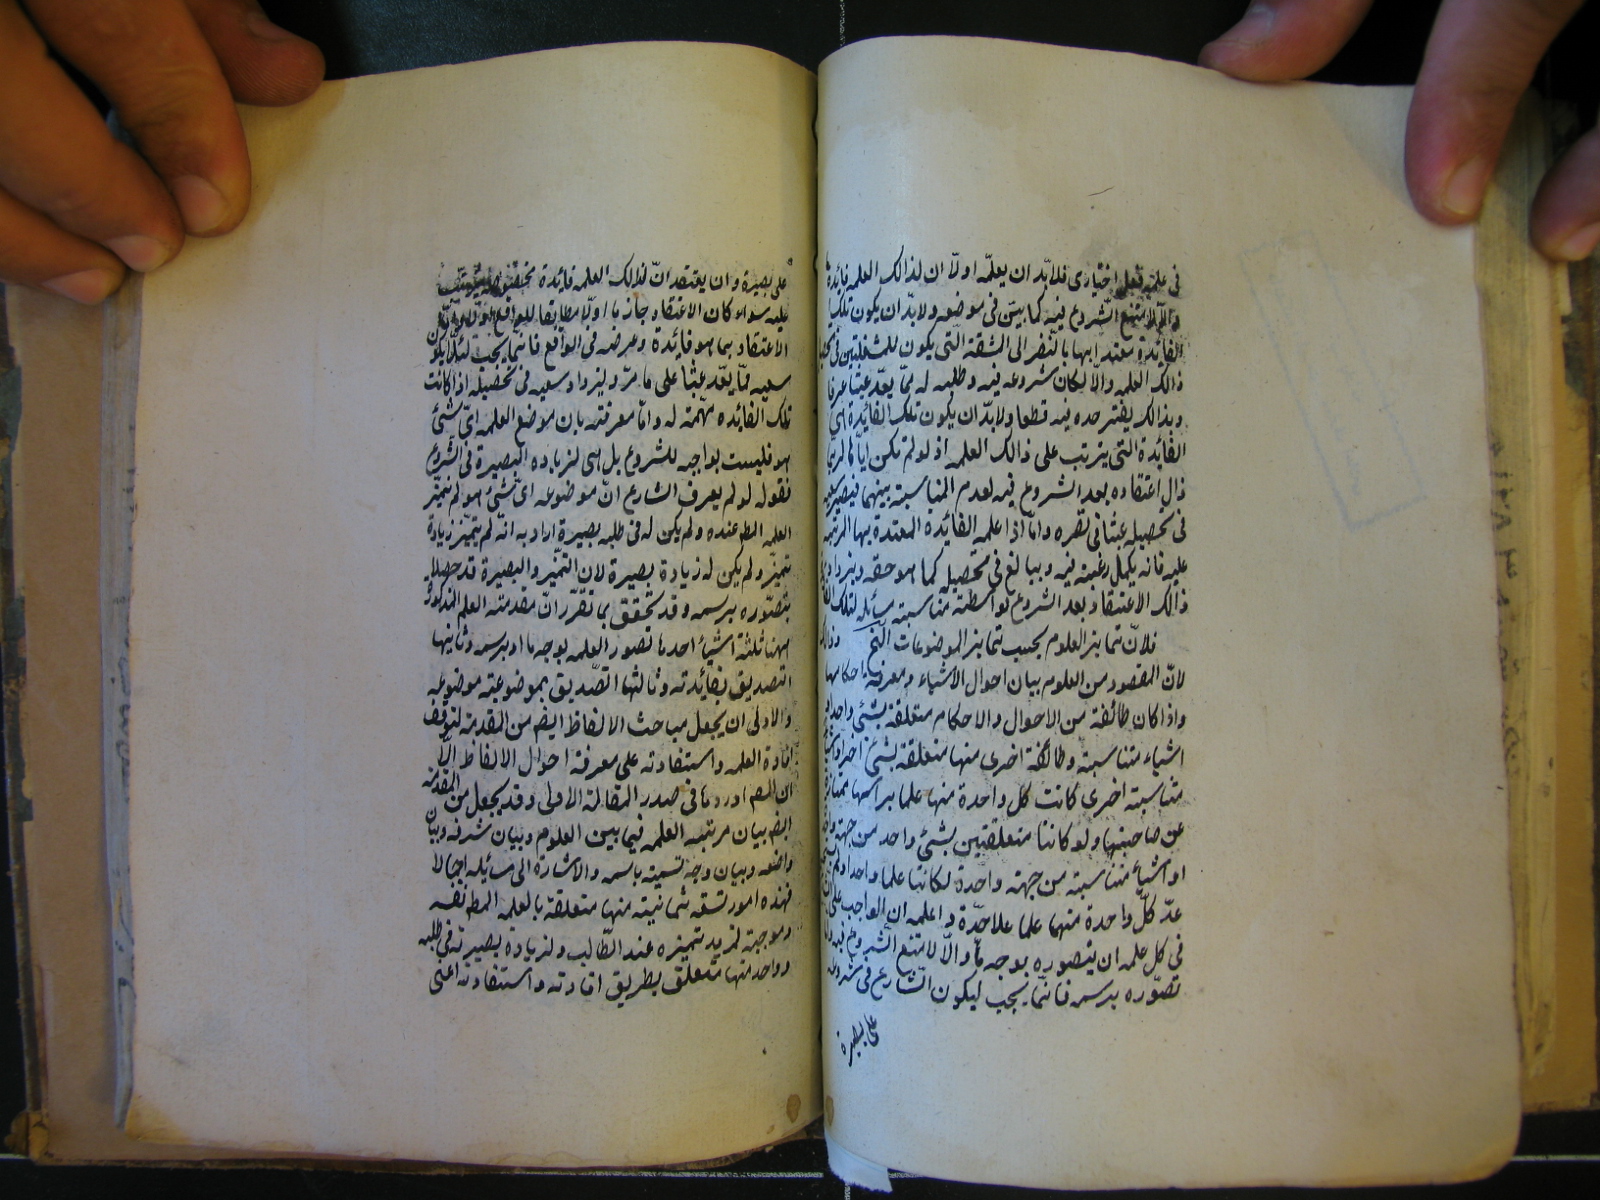 فى علم فعل اختيارى فلا بد ان يعلم اولا ان لذالك العلم فائدة
والا لامتنع الشروع فيه كما بين فى موضعه ولا بد ان يكون تلك
الفائدة معتدا بها بالنظر الى المشقة التى يكون للمشتغلين فى
ذالك العلم والا لكان شروعه فيه وطلبه له مما يعد عبثا عرفا
وبذالك يفتر جده فيه قطعا ولا بد ان يكون تلك الفائدة هى
الفائدة التى يترتب على ذالك العلم اذ لو لم تكن اياها لربما
زال اعتقاده بعد الشروع فيه لعدم المناسبة بينهما فيصير سعيه
فى تحصيله عبثا فى نظره واما اذا علم الفائدة المعتدة بها المترتبة
عليه فانه يكمل رغبته فيه ويبالغ فى تحصيله كما هو حقه ويزداد
ذالك الاعتقاد بعد الشروع بواسطة مناسبة مسائله لتلك
فلان تمايز العلوم بحسب تمايز الموضوعات الخ
لان المقصود من العلوم بيان احوال الاشياء ومعرفة احكامها
واذا كان طائفة من الاحوال والاحكام متعلقة بشئ واحد
اشياء متناسبة وطائفة اخرى منها متعلقة بشئ اخر
متناسبة اخرى كانت كل واحدة منها علما براسها ممتازة
عن صاحبتها ولو كانتا متعلقتين بشئ واحد من جهة
او اشياء متناسبة من جهة واحدة لكانتا علما واحدا ولم
عد كل واحدة منهما علما علاحدة واعلم ان الواجب على
فى كل علم ان يتصوره بوجه ما والا لامتنع الشروع فيه
تصوره برسمه فانما يجب ليكون الشارع فى شروعه
على بصيرة
على بصيرة وان يعتقد ان لذالك العلم فائدة مخصوصة
عليه سواء كان الاعتقاد جازما اولا مطابقا للواقع اولا
الاعتقاد بما هو فائدة وغرضه فى الواقع فانما يجب لئلا يكون
سعيه مما يعد عبثا على ما مر وليزداد سعيه فى تحصيله اذا كانت
تلك الفائدة مهمة له واما معرفته بان موضع العلم اى شئ
هو فليست بواجبة للشروع بل هى لزيادة البصيرة فى الشروع
فقوله لو لم يعرف الشارع ان موضوعه اى شئ هو لم يتميز
العلم المط عنده ولم يكن له فى طلبه بصيرة اراد به انه لم يتميز زيادة
تميز ولم يكن له زيادة بصيرة لان التميز والبصيرة قد حصلا له
بتصوره برسمه وقد تحقق بما تقرر ان مقدمة العلم المذكورة
ههنا ثلثة اشياء احدها تصور العلم بوجه ما او برسمه وثانيها
التصديق بفائدته وثالثها التصديق بموضوعية موضوعه
والاولى ان يجعل مباحث الالفاظ ايضا من المقدمة لتوقف
افادة العلم واستفادته على معرفة احوال الالفاظ الا
ان المص اوردها فى صدر المقالة الاولى وقد يجعل من المقدمة
ايضا بيان مرتبة العلم فيما بين العلوم وبيان شرفه وبيان
واضعه وبيان وجه تسميته باسمه والاشارة الى مسائله اجمالا
فهذه امور تسعة ثمانية منها متعلقة بالعلم المط نفسه
وموجبة لمزيد تميزه عند الطالب ولزيادة بصيرته فى طلبه
وواحد منها متعلق بطريق افادته واستفادته اعنى